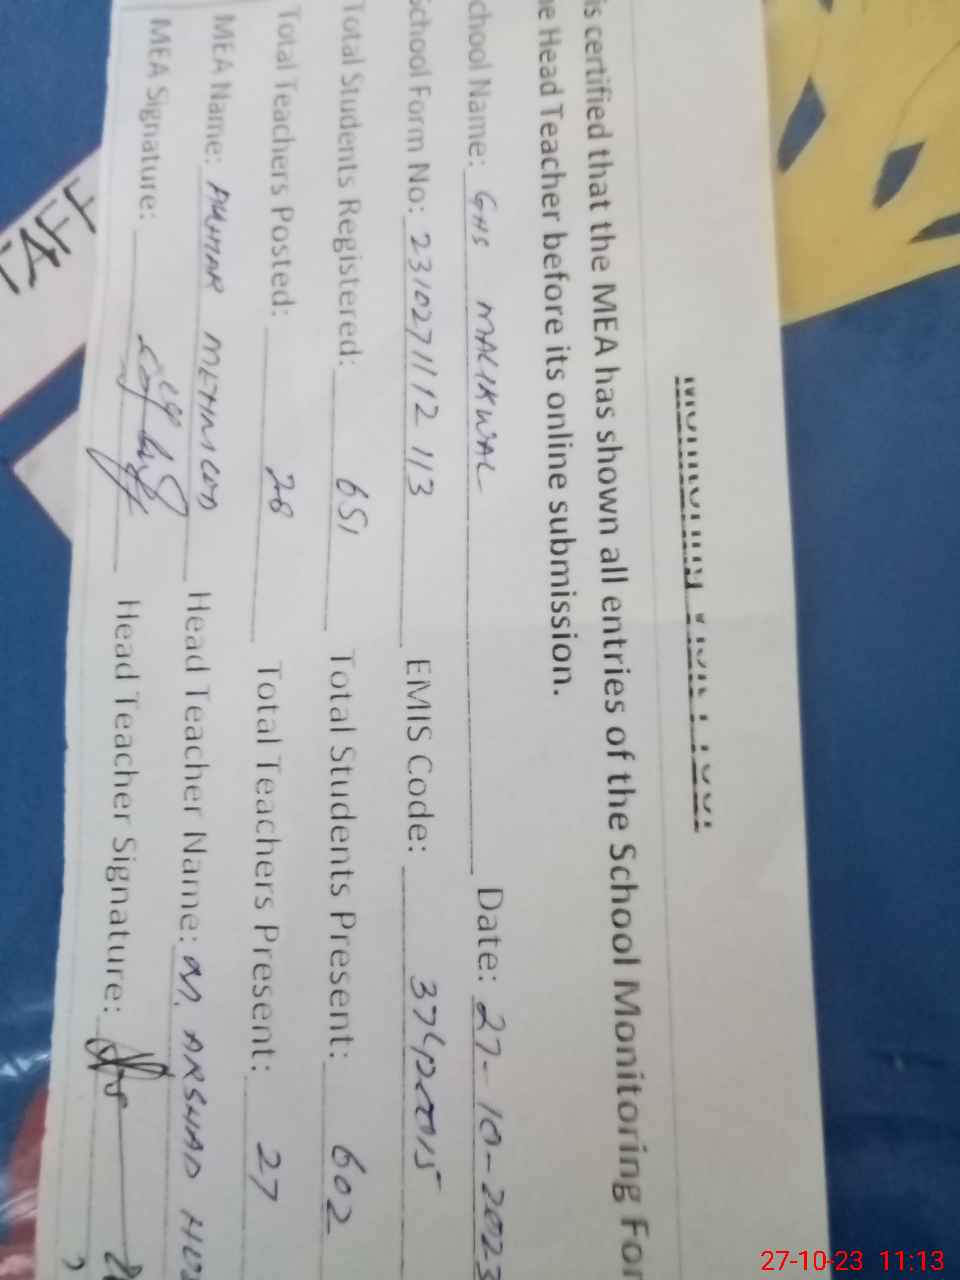 Monitoring Visit Proof
is certified that the MEA has shown all entries of the School Monitoring For
e Head Teacher before its online submission.
chool Name: GHS MALIKWAL Date: 27-10-2023
School Form No: 231027 1112 113 EMIS Code:
Total Students Registered: 651 Total Students Present: 602
Total Teachers Posted: 28 Total Teachers Present: 27
MEA Name: Head Teacher Name: M. ARSHAD
MEA Signature: Head Teacher Signature:
27-10-23 11:13